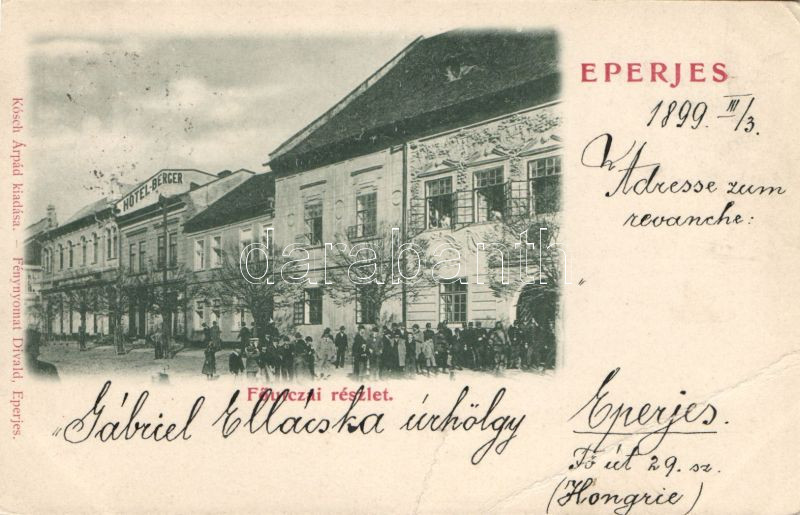 EPERJES
1899. III/3.
Adresse zum
revanche:
HOTEL-BERGER
darabanth
Főutczai részlet.
„Gábriel Ellácska úrhölgy
Eperjes.
Fő út 29. sz.
(Hongrie)
Kósch Árpád kiadása. – Fénynyomat Divald, Eperjes.